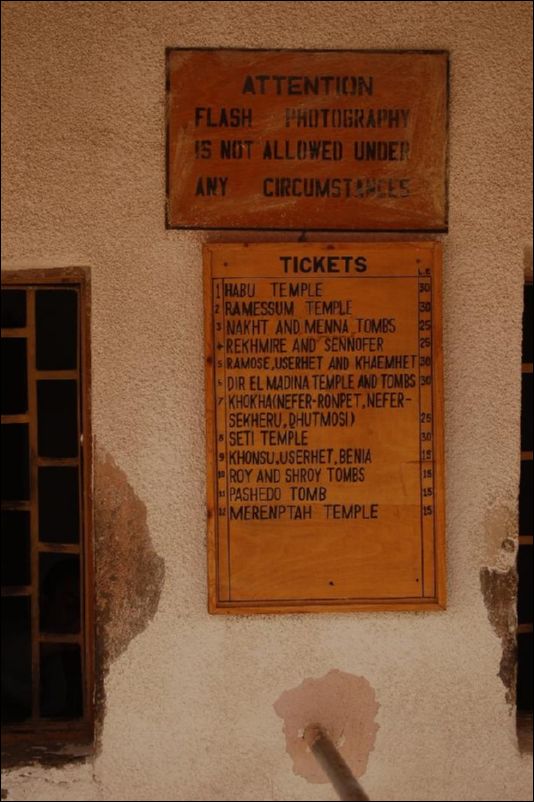 ATTENTION
FLASH PHOTOGRAPHY
IS NOT ALLOWED UNDER
ANY CIRCUMSTANCES
TICKETS L.E
1 HABU TEMPLE 30
2 RAMESSUM TEMPLE 30
3 NAKHT AND MENNA TOMBS 25
4 REKHMIRE AND SENNOFER 25
5 RAMOSE,USERHET AND KHAEMHET 30
6 DIR EL MADINA TEMPLE AND TOMBS 30
7 KHOKHA(NEFER-RONPET,NEFER-
SEKHERU,DHUTMOSI) 25
8 SETI TEMPLE 30
9 KHONSU,USERHET,BENIA 15
10 ROY AND SHROY TOMBS 15
11 PASHEDO TOMB 15
12 MERENPTAH TEMPLE 15